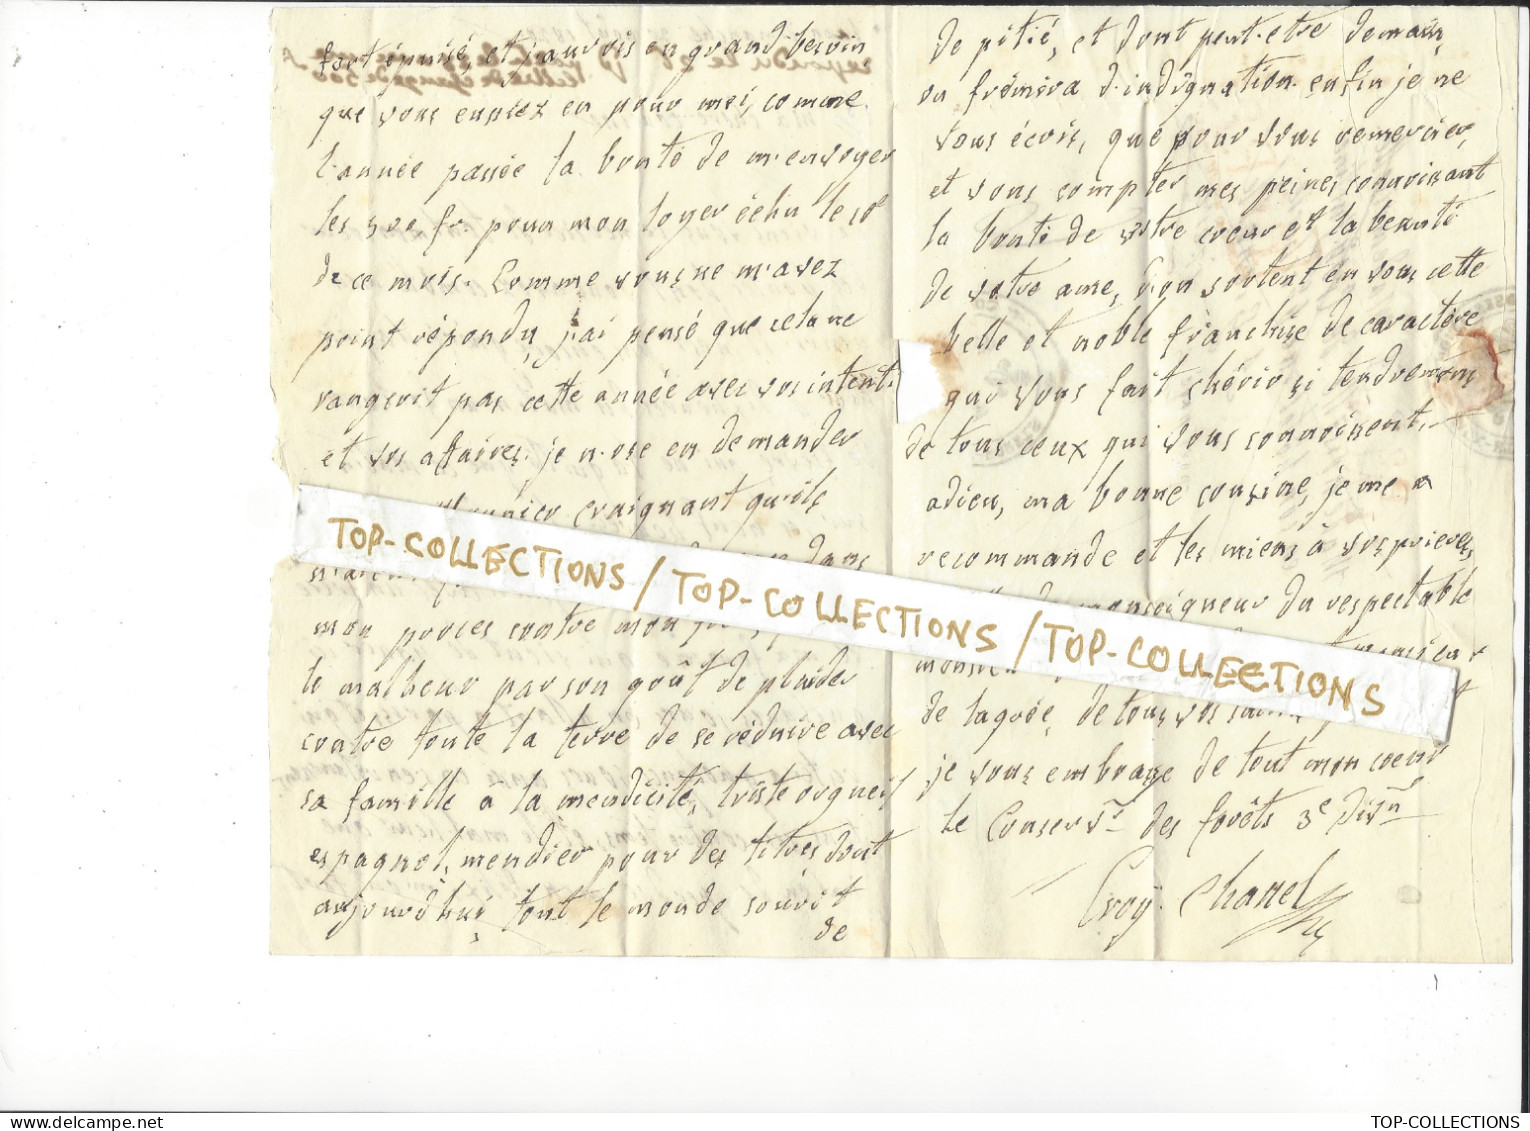 fort épuisé, et j'aurois en grand besoin
que vous eussiez eu pour moi, comme
l'année passée la bonté de m'envoyer
les 500 fr. pour mon loyer échu le 10e
de ce mois. Comme vous ne m'avez
point répondu, j'ai pensé que cela ne
rangeoit pas cette année avec vos intent.
et vos affaires. je n'ose en demander
craignant qu'ils
dans
mon procès contre mon
le malheur par son goût de plaider
contre toute la terre de se réduire avec
sa famille à la mendicité, triste orgueil
espagnol, mendier pour des titres dont
aujourd'hui tout le monde sourit
de
de pitié, et dont peut-etre demain,
on frémira d'indignation. enfin je ne
vous écris, que pour vous remercier,
et vous compter mes peines connoissant
la bonté de votre coeur et la beauté
de votre ame, d'où sortent en vous cette
belle et noble franchise de caractère
qui vous fait chérir si tendrement
de tous ceux qui vous connoissent.
adieu, ma bonne cousine, je me
recommande et les miens à vos prieres,
monseigneur du respectable
de lagrée, de tous vos
je vous embrasse de tout mon coeur
le Conservr des forêts 3e Disn
Croÿ Chanel
TOP-COLLECTIONS / TOP-COLLECTIONS / TOP-COLLECTIONS
TOP-COLLECTIONS